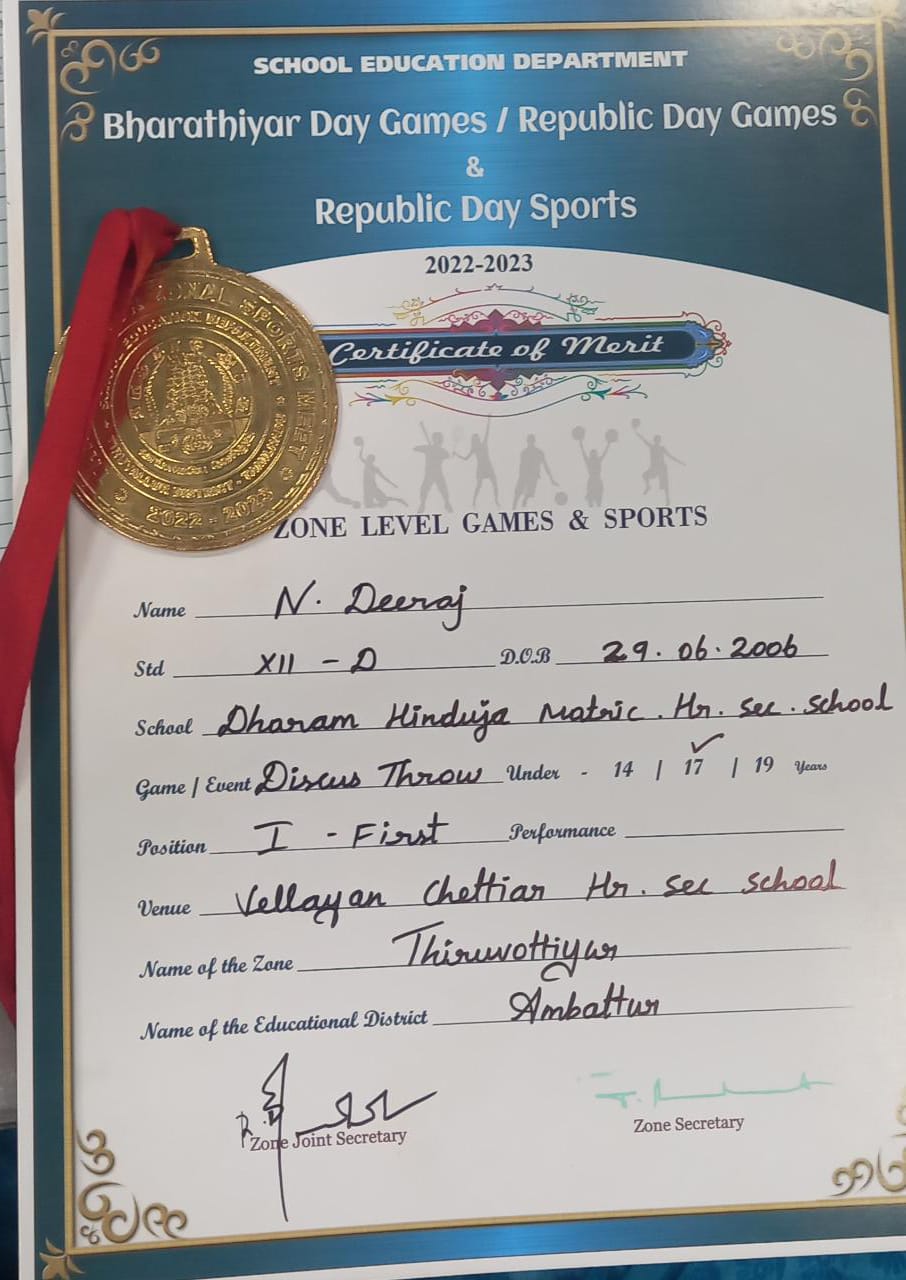 SCHOOL EDUCATION DEPARTMENT
Bharathiyar Day Games / Republic Day Games
&
Republic Day Sports
2022-2023
Certificate of Merit
SPORTS MEET
EDUCATION DEPARTMENT
DISTRICT
2022 - 2023
ZONE LEVEL GAMES & SPORTS
Name N. Deeraj
Std XII - D D.O.B 29.06.2006
School Dharam Hinduja Matric. Hr. Sec. School
Game / Event Discus Throw Under - 14 | 17 ✓ | 19 Years
Position I - First Performance
Venue Vellayan Chettiar Hr. Sec School
Name of the Zone Thiruvottiyur
Name of the Educational District Ambattur
Zone Joint Secretary
Zone Secretary